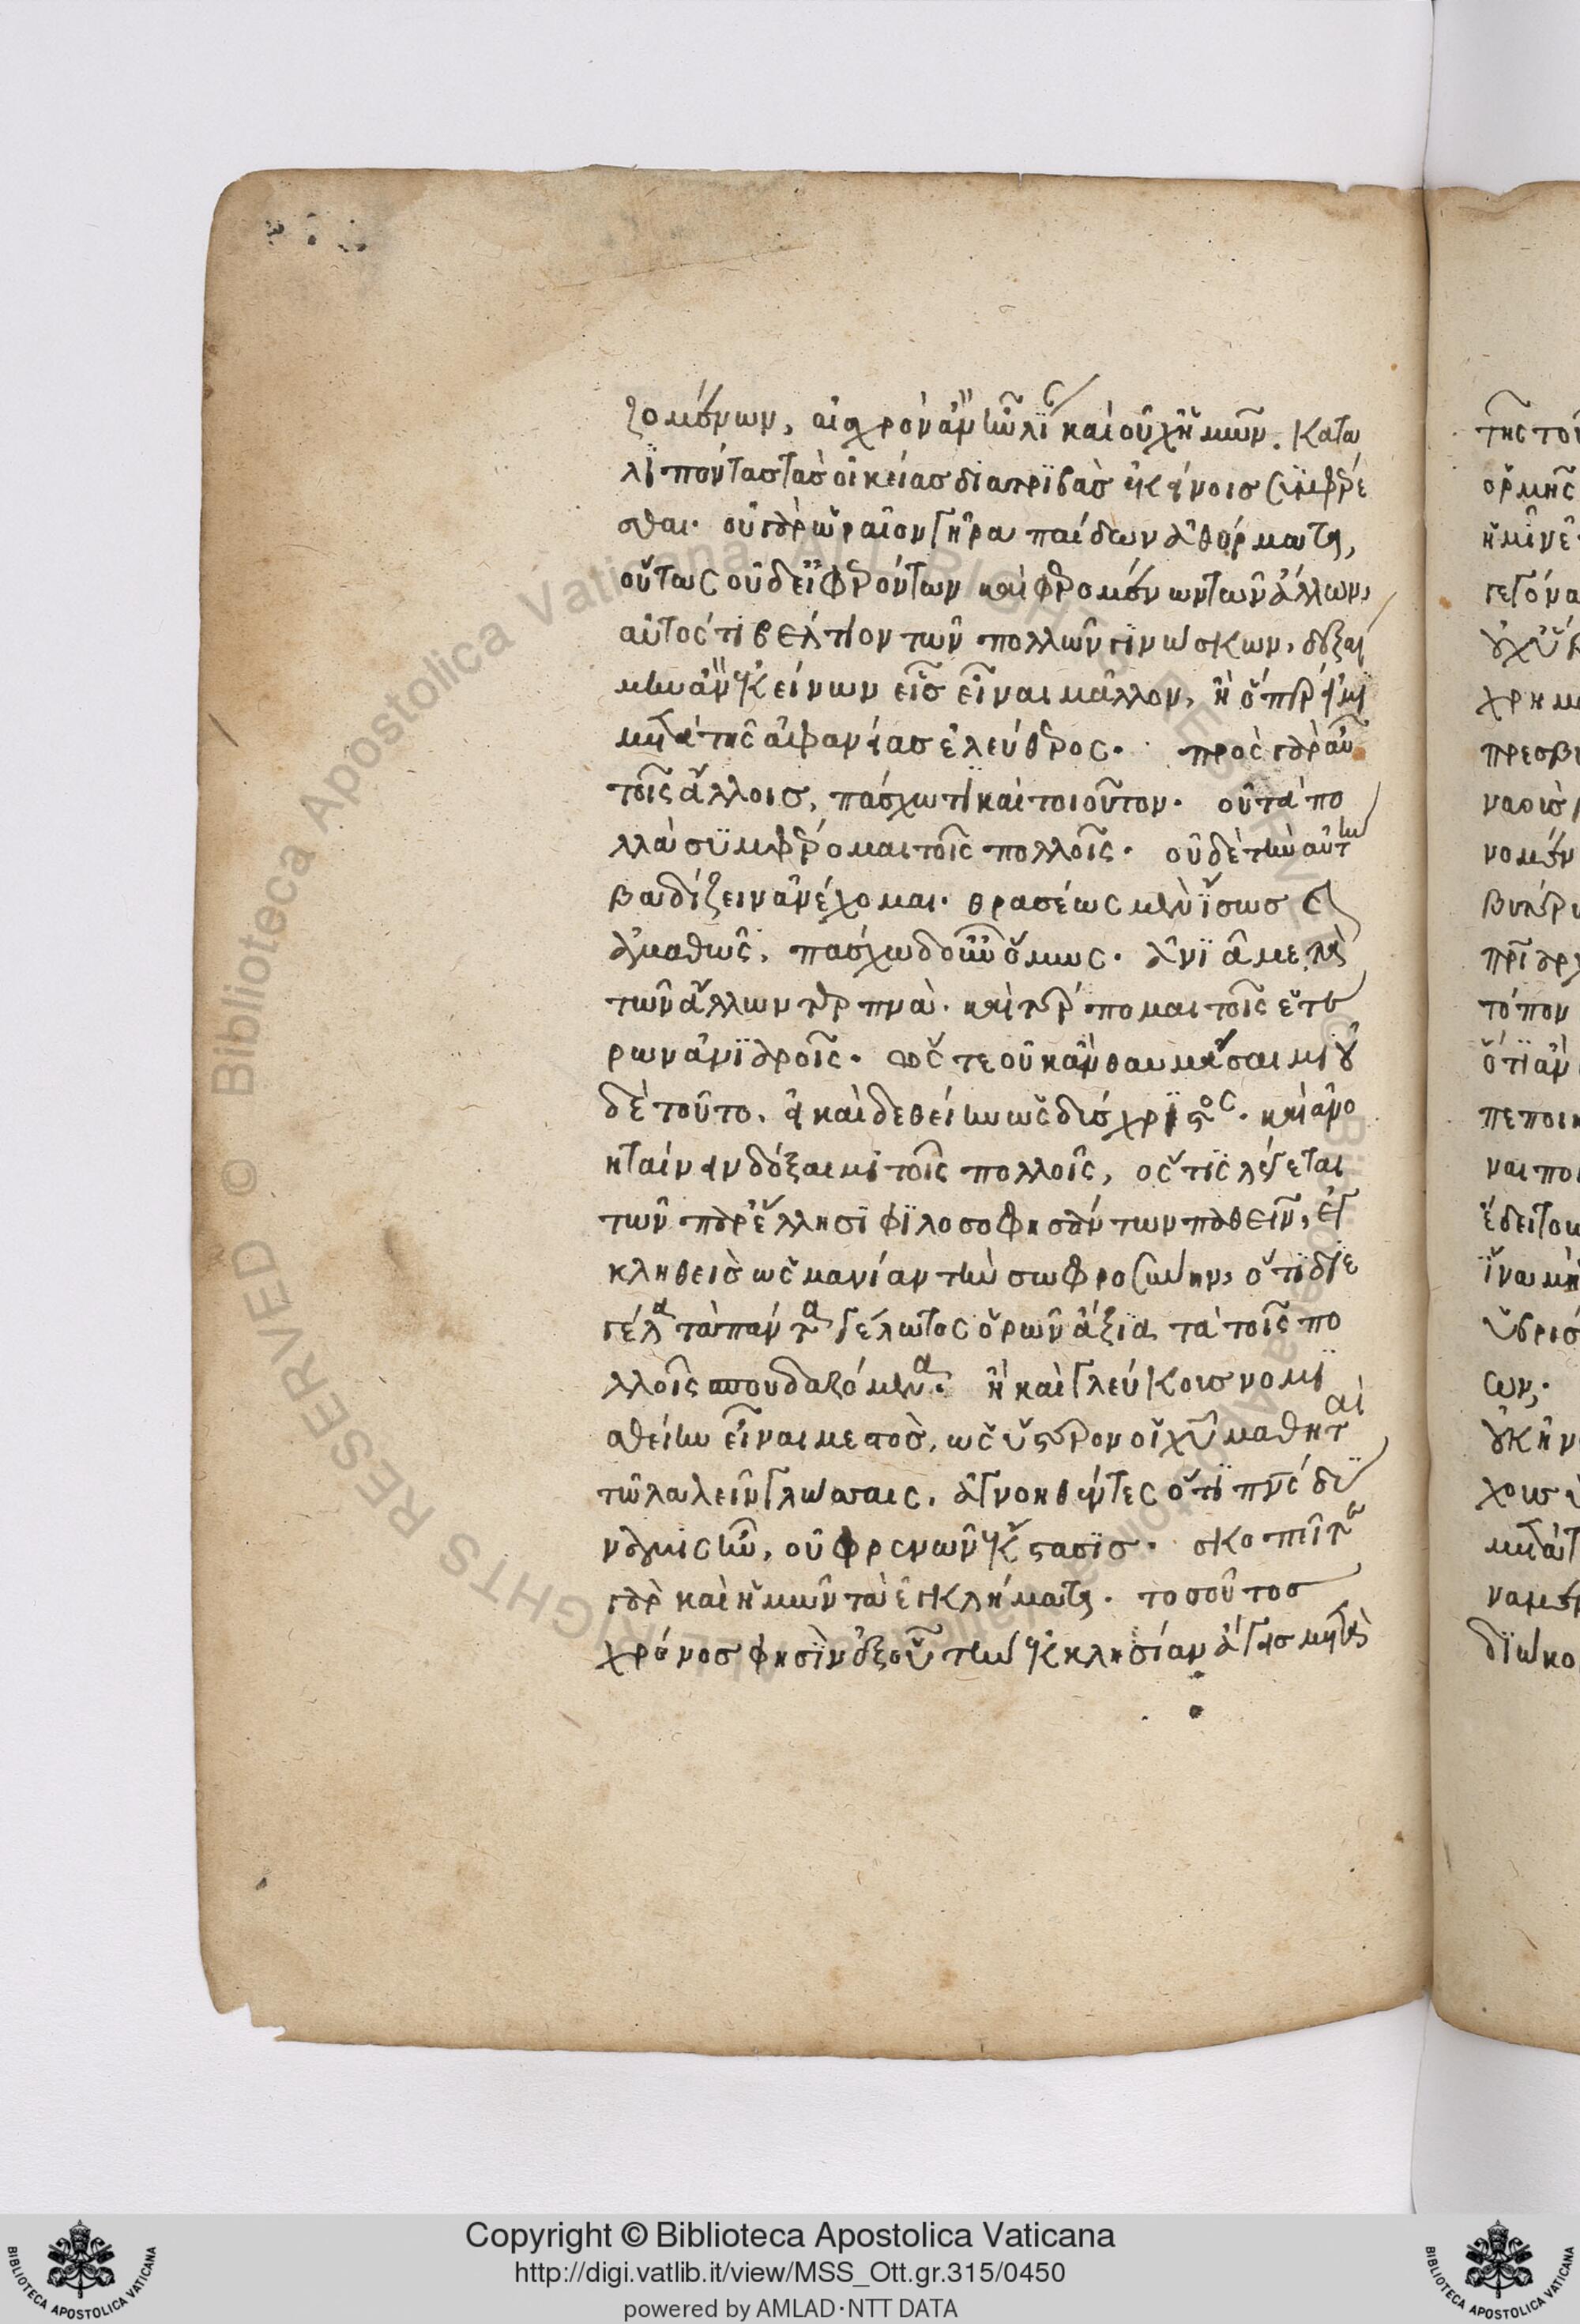 ζομένων, αἰσχρὸν ἂν ἦν λίαν καὶ οὐχ ἡμῶν. κατα
λιπόντας τὰς οἰκείας διατριβὰς ἐκείνοις συμφέρε
σθαι. οὐ γὰρ ὡραῖον γῆρα παίδων ἀθύρματα,
οὕτως οὐδεὶ φερόντων καὶ φερομένων τῶν ἄλλων,
αὐτός τι βέλτιον τῶν πολλῶν γινώσκων, δεξαί
μην ἂν ἐκείνων εἷς εἶναι μᾶλλον, ἢ ὅπερ εἰμὶ
μετὰ τῆς ἀφανείας ἐλεύθερος. πρὸς γὰρ αὖ
τοῖς ἄλλοις, πάσχω τι καὶ τοιοῦτον. οὔτα πο
λλὰ συμφέρομαι τοῖς πολλοῖς. οὐδὲ τὴν αὐτὴν
βαδίζειν ἀνέχομαι. θρασέως μὲν ἴσως καὶ
ἀμαθῶς, πάσχω δ' οὖν ὅμως. ἀνιᾶ με τὰ
τῶν ἄλλων τερπνά. καὶ τέρπομαι τοῖς ἑτέ
ρων ἀνιαροῖς. ὥστε οὐκ ἂν θαυμάσαιμι οὐ
δὲ τοῦτο, εἰ καὶ δεθείην ὡς δύσχρηστος. καὶ ἄνο
ηταίνειν δόξαιμι τοῖς πολλοῖς, ὅς τις λέγεται
τῶν παρ' ἕλλησι φιλοσοφησάντων παθεῖν, ἐγ
κληθεὶς ὡς μανίαν τὴν σωφροσύνην, ὅτι διε
γέλα τὰ πάντα γέλωτος ὁρῶν ἄξια τὰ τοῖς πο
λλοῖς σπουδαζόμενα. ἢ καὶ γλεύκους νομι
σθείην εἶναι μεστὸς, ὡς ὕστερον οἱ χριστοῦ μαθηταὶ
τῷ λαλεῖν γλώσσαις, ἀγνοηθέντες ὅτι πνεύματος δύ
ναμις ἦν, οὐ φρενῶν ἔκστασις. σκοπεῖτε
γὰρ καὶ ἡμῶν τὰ ἐγκλήματα. τοσοῦτος
χρόνος φησὶν ἐξ οὗ τὴν ἐκκλησίαν ἄγεις μετὰ
Copyright © Biblioteca Apostolica Vaticana
http://digi.vatlib.it/view/MSS_Ott.gr.315/0450
powered by AMLAD·NTT DATA